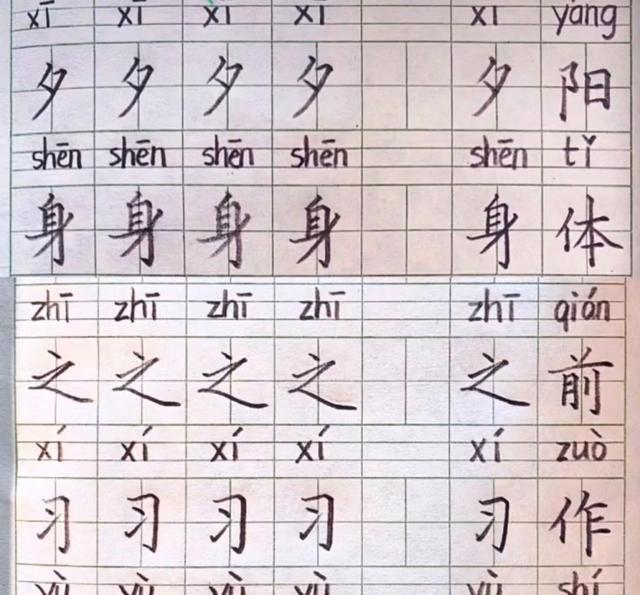 xī xī xī xī xī yáng
夕 夕 夕 夕 夕 阳
shēn shēn shēn shēn shēn tǐ
身 身 身 身 身 体
zhī zhī zhī zhī zhī qián
之 之 之 之 之 前
xí xí xí xí xí zuò
习 习 习 习 习 作
yù yù yù yù yù shí